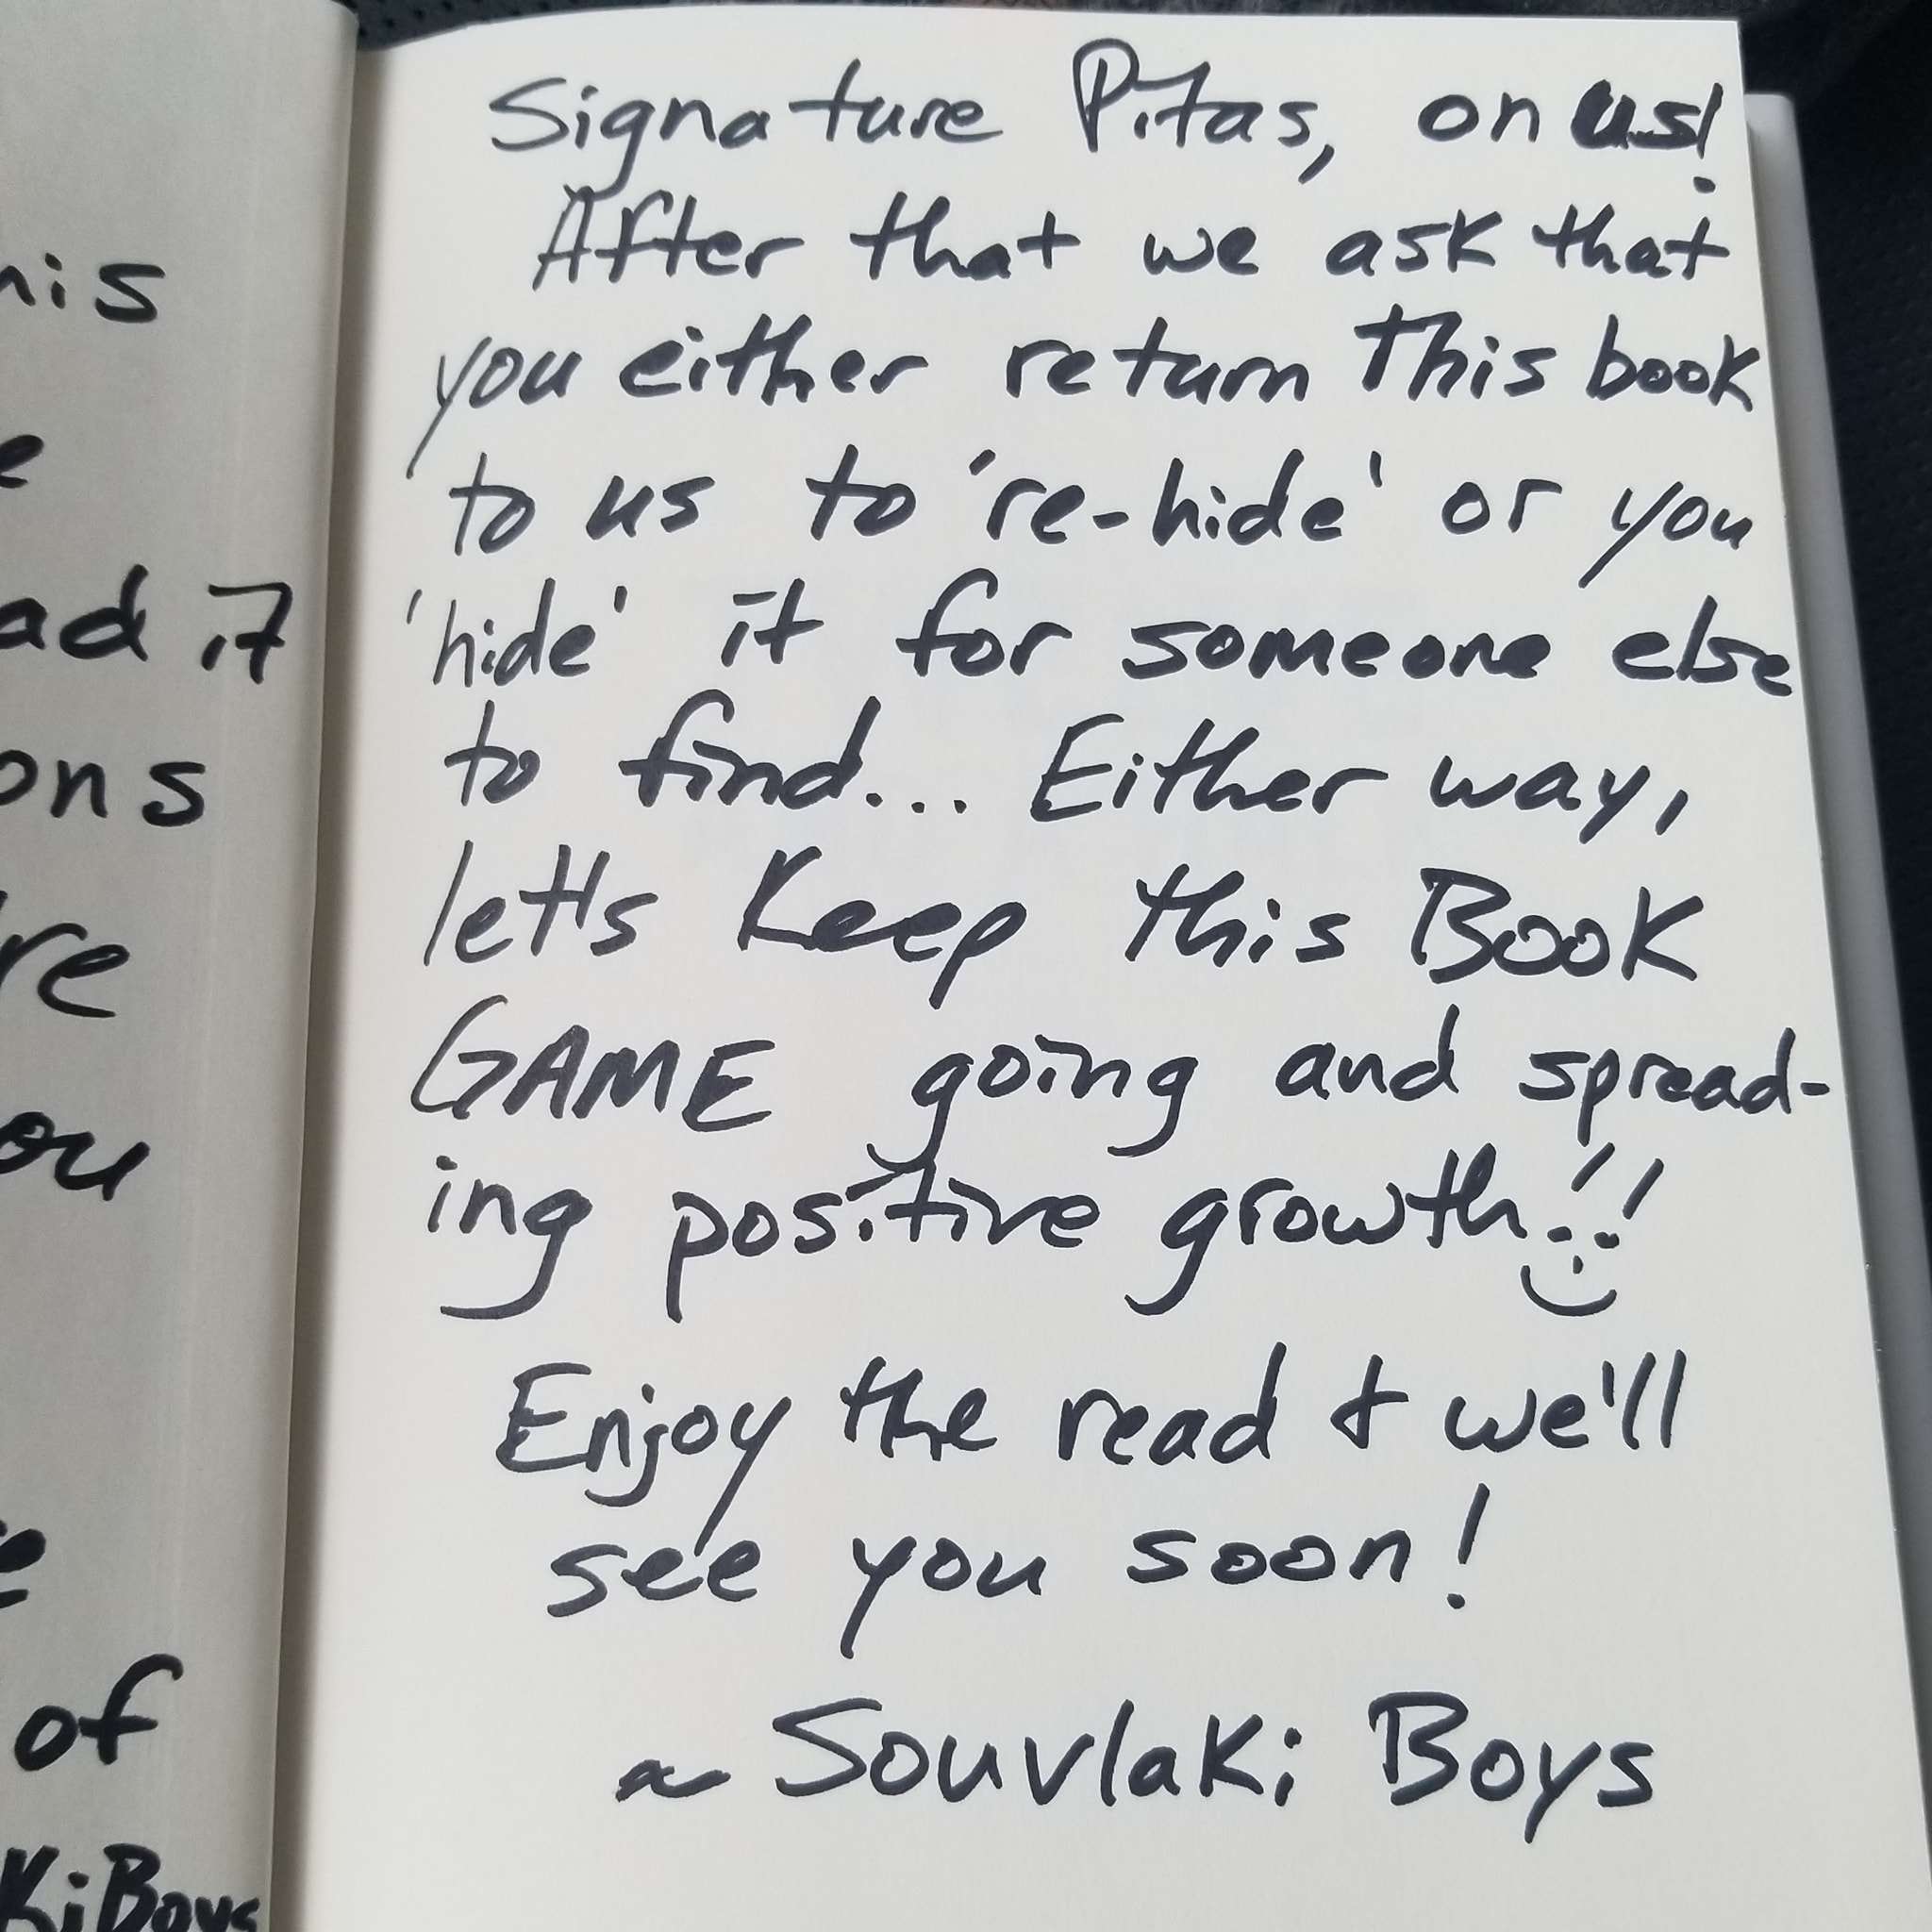 his
e
ad it
ons
re
ou
e
of
KiBoys
Signature Pitas, on us!
After that we ask that
you either return This book
to us to 're-hide' or you
'hide' it for someone else
to find... Either way,
let's Keep this BOOK
GAME going and spread-
ing positive growth!!
Enjoy the read & we'll
see you soon!
~ Souvlaki Boys